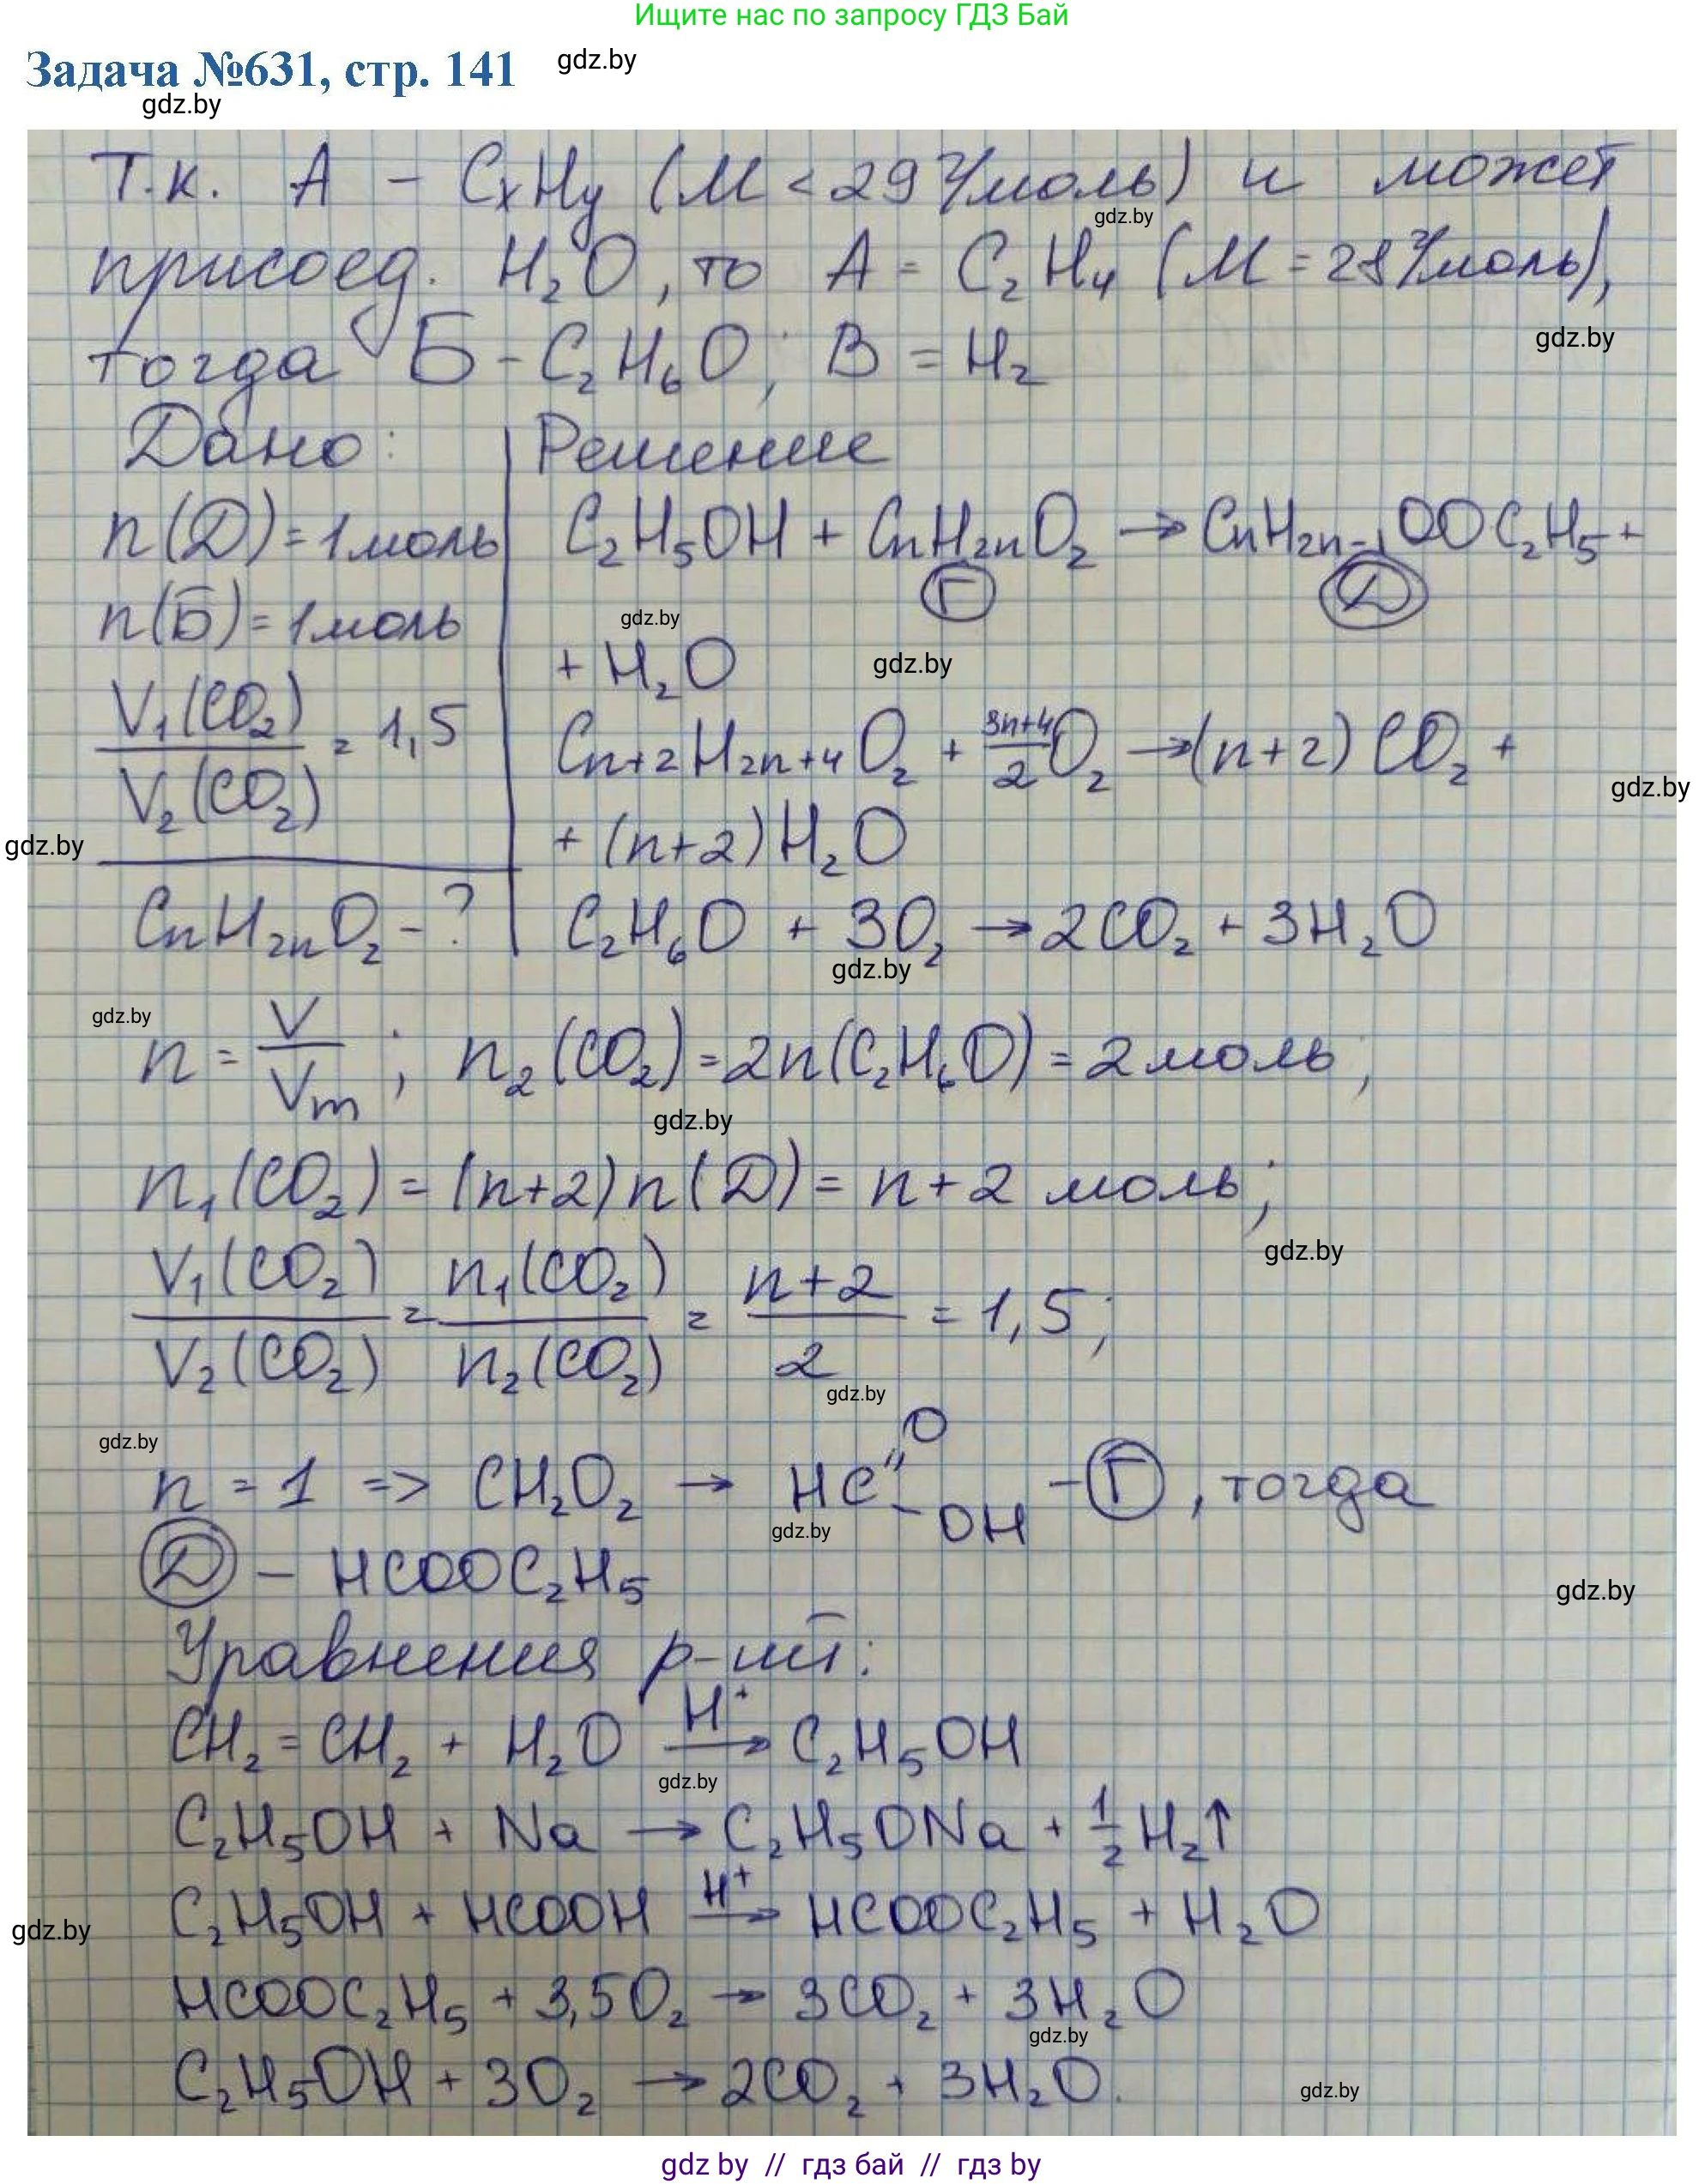 Ищите нас по запросу ГДЗ Бай
Задача №631, стр. 141
gdz.by
gdz.by
Т.к. А – CxHy (M < 29 г/моль) и может
gdz.by
присоед. H₂O, то А = C₂H₄ (M = 28 г/моль),
gdz.by
тогда Б – C₂H₆O; В = H₂
Дано: Решение
n(Д) = 1 моль C₂H₅OH + CnH2nO₂ → CnH2n-1OOC₂H₅ +
Г Д
n(Б) = 1 моль
gdz.by
+ H₂O
gdz.by
V₁(CO₂)/V₂(CO₂) = 1,5 Cn+2H2n+4O₂ + (3n+4)/2 O₂ → (n+2) CO₂ +
gdz.by
gdz.by
+ (n+2) H₂O
CnH2nO₂ – ? C₂H₆O + 3O₂ → 2CO₂ + 3H₂O
gdz.by
gdz.by
n = V/Vm; n₂(CO₂) = 2n(C₂H₆O) = 2 моль;
gdz.by
n₁(CO₂) = (n+2) n(Д) = n+2 моль;
gdz.by
V₁(CO₂)/V₂(CO₂) = n₁(CO₂)/n₂(CO₂) = (n+2)/2 = 1,5;
gdz.by
gdz.by
n = 1 => CH₂O₂ → HC=O –OH – Г, тогда
gdz.by
Д – HCOOC₂H₅
gdz.by
Уравнения р-ий:
CH₂=CH₂ + H₂O →(H⁺) C₂H₅OH
gdz.by
C₂H₅OH + Na → C₂H₅ONa + 1/2 H₂↑
C₂H₅OH + HCOOH →(H⁺) HCOOC₂H₅ + H₂O
gdz.by
HCOOC₂H₅ + 3,5O₂ → 3CO₂ + 3H₂O
gdz.by
C₂H₅OH + 3O₂ → 2CO₂ + 3H₂O.
gdz.by
gdz.by // гдз бай // гдз by